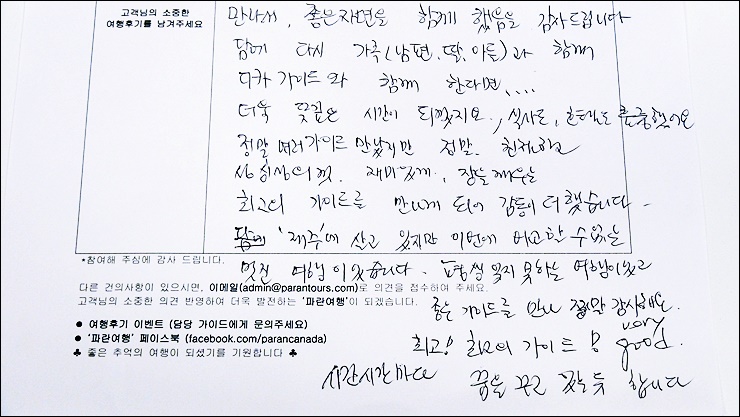 고객님의 소중한
여행후기를 남겨주세요
만나서, 좋은자연을 함께 했음을 감사드립니다
담에 다시 가족(남편, 딸, 아들)과 함께
디카 가이드와 함께 한다면....
더욱 뜻깊은 시간이 되겠지요, 식사도, 호텔도 훌륭했어요
정말 여러가이드 만났지만 정말. 친절하고
성심성의껏. 재미있게,
최고의 가이드를 만나게 되어 감동이 더 했습니다
'제주'에 살고 있지만 이번에 비교할 수 없는
멋진 여행이었습니다. 평생 잊지 못하는 여행이었고
*참여해 주심에 감사 드립니다.
다른 건의사항이 있으시면, 이메일(admin@parantours.com)로 의견을 접수하여 주세요.
고객님의 소중한 의견 반영하여 더욱 발전하는 '파란여행'이 되겠습니다.
좋은 가이드를 만나 정말 감사해요.
● 여행후기 이벤트 (담당 가이드에게 문의주세요)
● '파란여행' 페이스북 (facebook.com/parancanada)
최고! 최고의 가이드 very good.
♣ 좋은 추억의 여행이 되셨기를 기원합니다 ♣
시간시간마다 꿈을 꾸고 있는듯 합니다